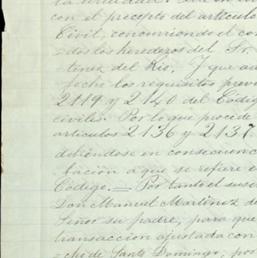 con el precepto del artículo
Civil, concurriendo el con
dos los herederos del Sr.
tinez del Rio. Y que a
fiche los requisitos prev
2119 y 2140 del Código
civiles. Por lo que procede
artículos 2136 y 2137
debiéndose en consecuenc
bación a que se refiere e
Código. Por tanto el susc
Don Manuel Martinez de
Señor su padre, para que
transacción ajustada con
che de Santo Domingo, por